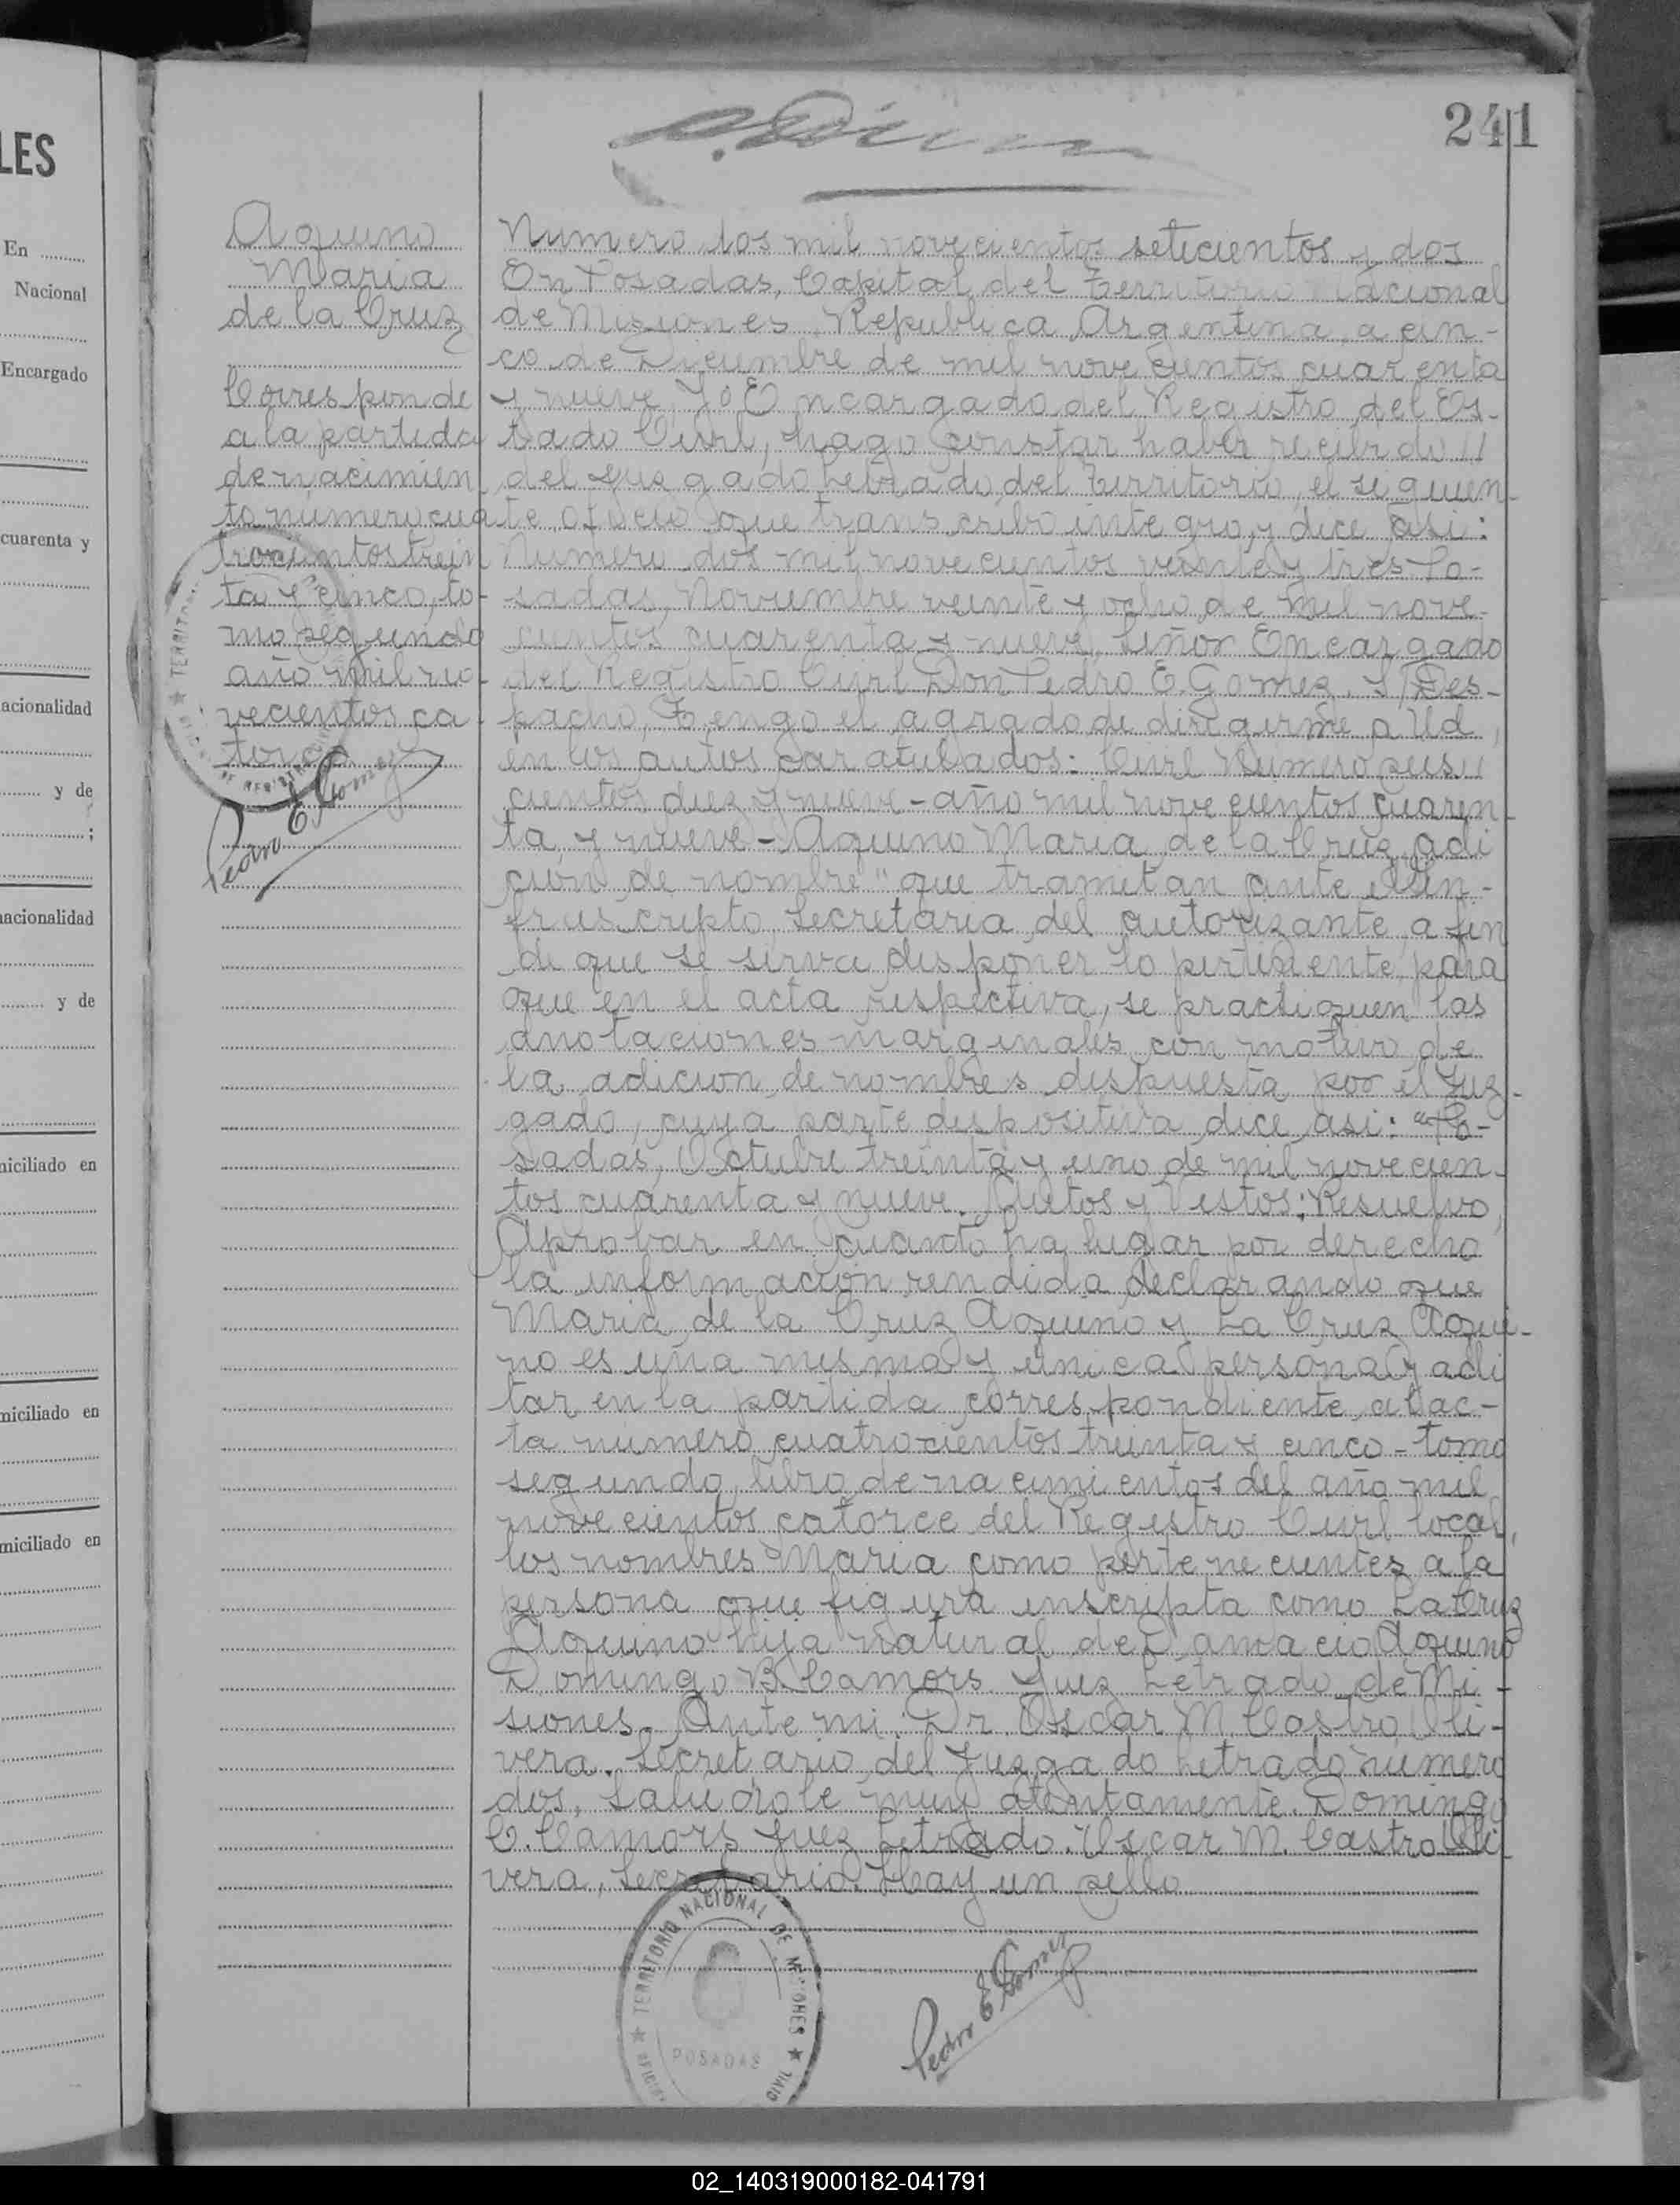 241
Aquino
Maria
de la Cruz
Corresponde
a la partida
de nacimien
to número cua
trocientos trein
ta y cinco, to-
mo segundo
año mil no-
vecientos ca-
torce
Pedro E Gomez
Numero dos mil novecientos setecientos y dos
En Posadas, Capital del Territorio Nacional
de Misiones Republica Argentina, a cin-
co de Diciembre de mil novecientos cuarenta
y nueve Yo Encargado del Registro del Es-
tado Civil, hago constar haber recibido
del Juzgado Letrado del Territorio, el siguien-
te oficio que transcribo integro, y dice asi:
Numero dos mil novecientos veinte y tres Po-
sadas, Noviembre veinte y ocho de mil nove-
cientos cuarenta y nueve, Señor Encargado
del Registro Civil Don Pedro E. Gomez. S/Des-
pacho, Tengo el agrado de dirigirme a Ud,
en los autos caratulados: Civil Numero seis
cientos diez y nueve - año mil novecientos cuaren
ta, y nueve - Aquino Maria de la Cruz adi
cion de nombre" que tramitan ante el in-
frascripto, Secretaria del autorizante, a fin
de que se sirva disponer lo pertinente, para
que en el acta respectiva, se practiquen las
anotaciones marginales con motivo de
la adicion de nombres dispuesta por el Juz-
gado, cuya parte dispositiva dice asi: "Po-
sadas, Octubre treinta y uno de mil novecien-
tos cuarenta y nueve. Autos y Vistos: Resuelvo,
Aprobar en cuanto ha lugar por derecho
la información rendida declarando que
Maria de la Cruz Aquino y La Cruz Aqui-
no es una misma y unica persona y adi
tar en la partida correspondiente, al ac-
ta número cuatrocientos treinta y cinco - tomo
segundo, libro de nacimientos del año mil
novecientos catorce del Registro Civil local,
los nombres Maria como pertenecientes a la
persona que figura inscripta como La Cruz
Aquino hija natural de Damacia Aquino
Domingo B. Camors. Juez Letrado de Mi-
siones. Ante mi: Dr. Oscar M. Castro Oli-
vera. Secretario del Juzgado Letrado número
dos, Saludole muy atentamente. Domingo
C. Camors Juez Letrado. Oscar M. Castro Oli
vera, Secretario. Hay un sello
TERRITORIO NACIONAL DE MISIONES
POSADAS
CIVIL
Pedro E Gomez
LES
En
Nacional
Encargado
cuarenta y
nacionalidad
y de
;
nacionalidad
y de
miciliado en
miciliado en
miciliado en
02_140319000182-041791